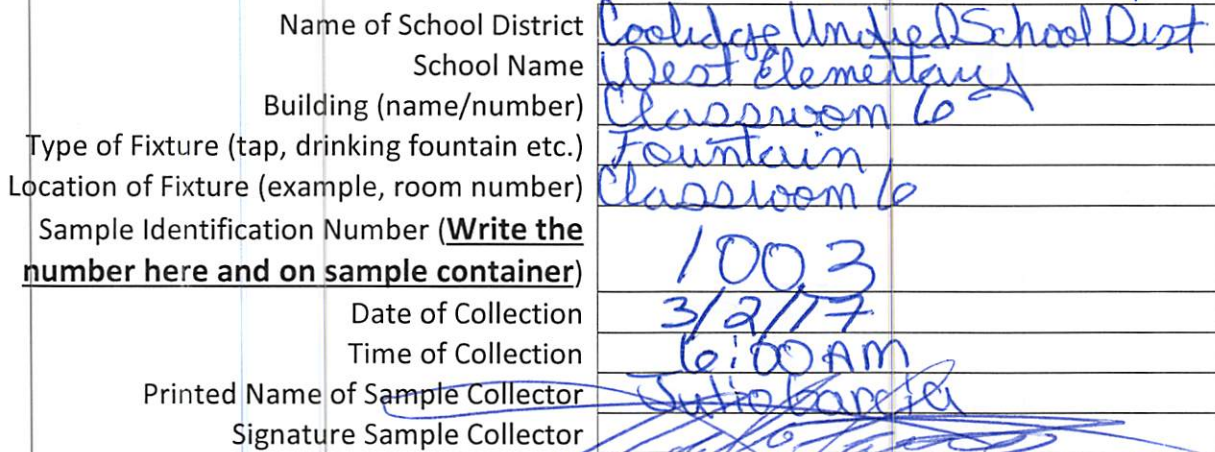 Name of School District Coolidge Unified School Dist
School Name West Elementary
Building (name/number) Classroom 6
Type of Fixture (tap, drinking fountain etc.) Fountain
Location of Fixture (example, room number) Classroom 6
Sample Identification Number (Write the
number here and on sample container) 1003
Date of Collection 3/2/17
Time of Collection 6:00 AM
Printed Name of Sample Collector Julio Garcia
Signature Sample Collector